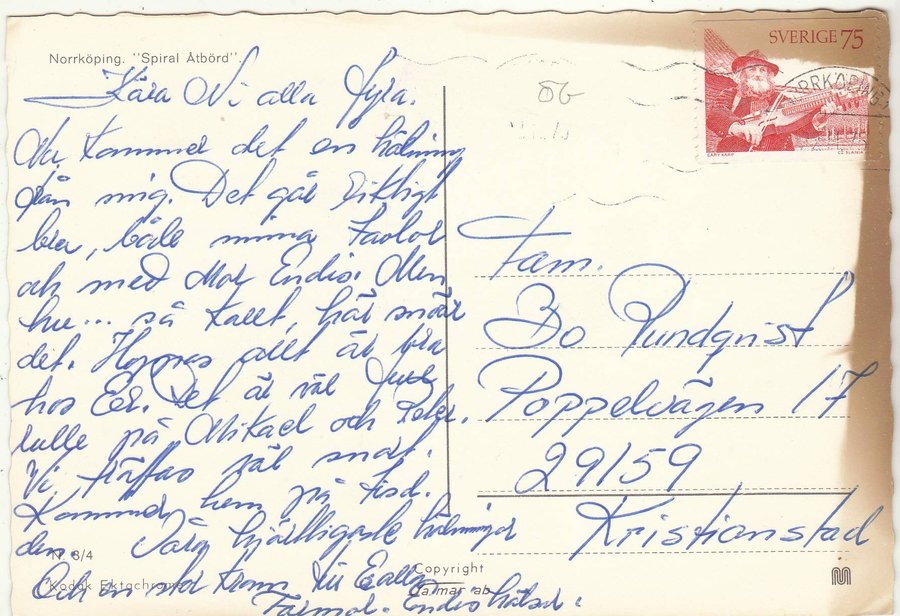 Norrköping. "Spiral Åtbörd".
Kära Ni alla fyra.
Nu kommer det en hälsning
från mig. Det går riktigt
bra, både mina tavlor
och med Mor Endis. Men
hu... så kallt, här snöar
det. Hoppas allt är bra
hos Eer. Det är väl full
rulle på Mikael och Peter.
Vi träffas väl snart.
Kommer hem på tisd.
den. Våra hjärtligaste hälsningar
Och en stor kram till Ealla
Farmor. Endis hälsar!
Nr. 8/4
Kodak Ektachrome
Copyright
ab
SVERIGE 75
GARY KARP
CZ SLANIA
RRKÖPING
Fam.
Bo Rundqvist
Poppelvägen 17
29159
Kristianstad